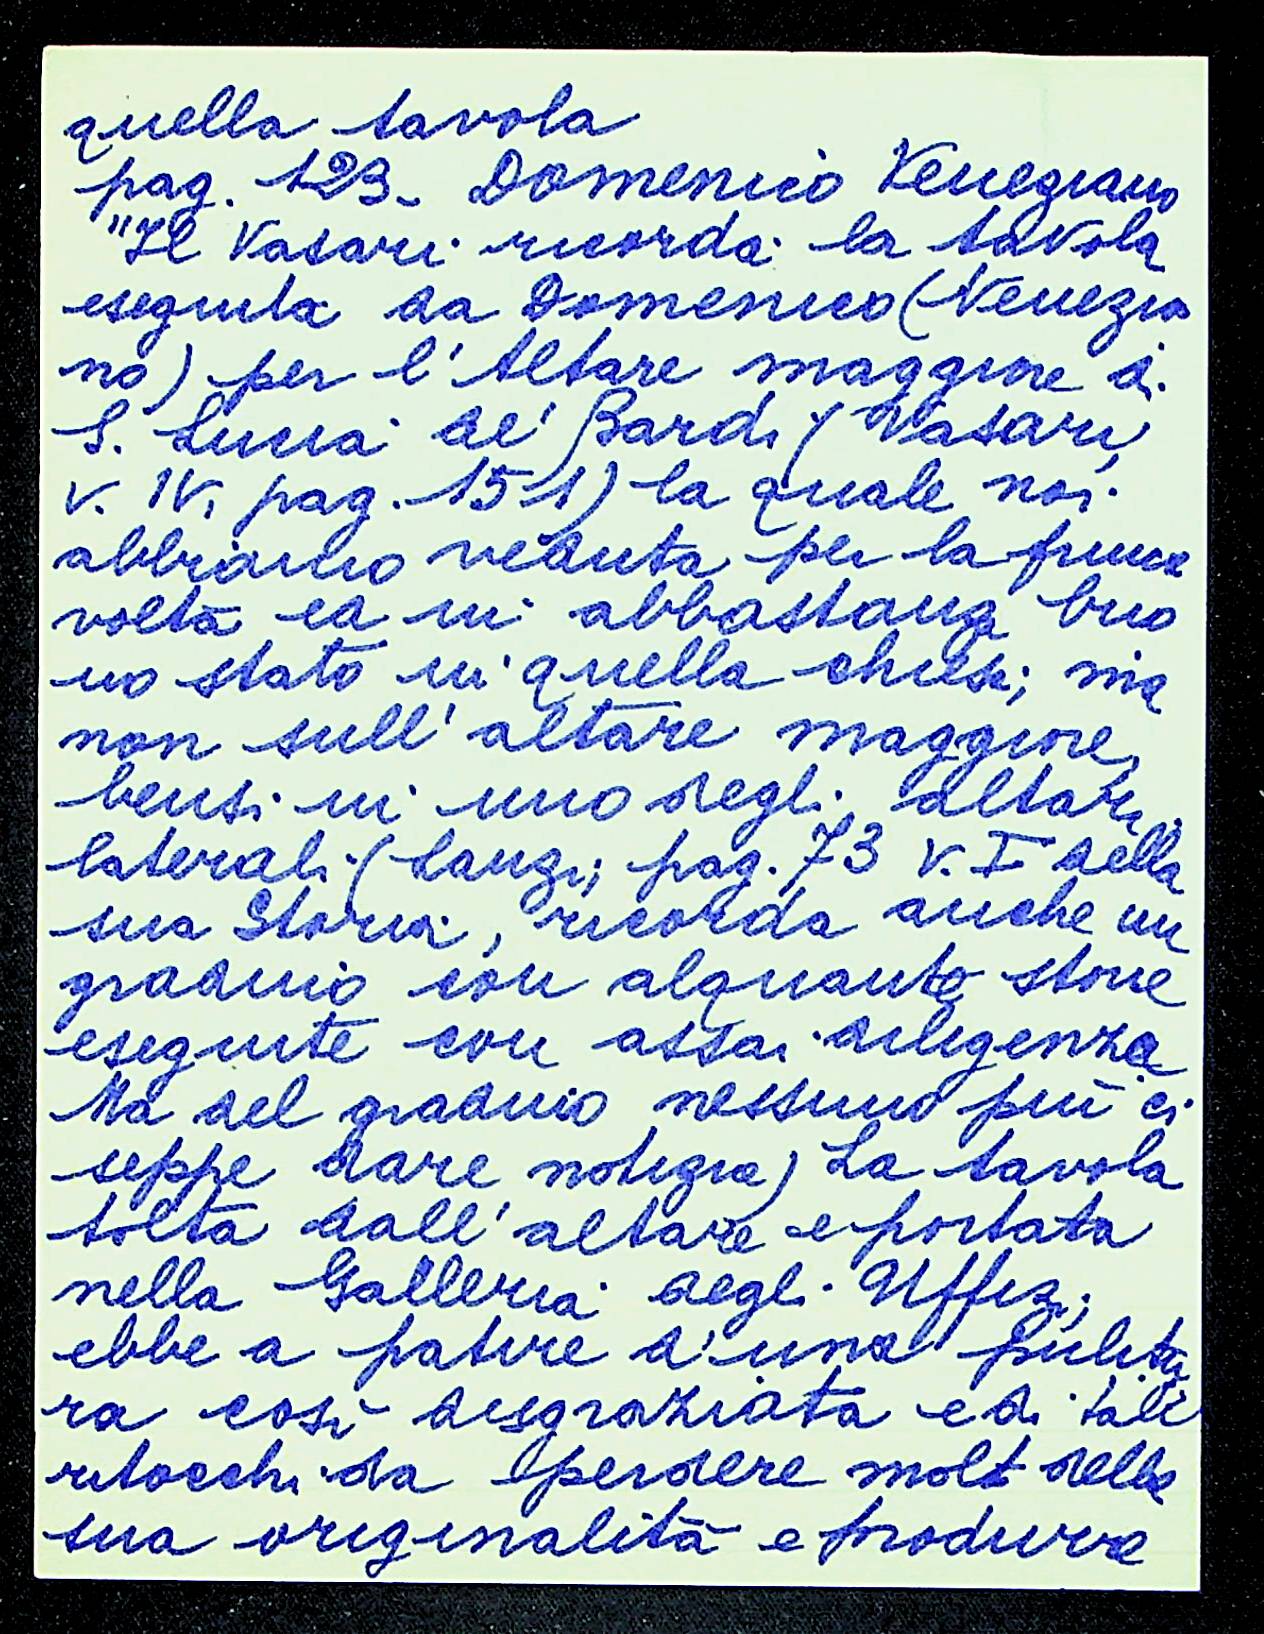 quella tavola
pag. 123- Domenico Veneziano
"Il Vasari ricorda la tavola
eseguita da Domenico (Venezia
no) per l'Altare maggiore di
S. Lucia de' Bardi (Vasari,
v. IV, pag. 151) la quale noi
abbiamo veduta per la prima
volta ed in abbastanza buo
no stato in quella chiesa; ma
non sull'altare maggiore,
bensi in uno degli altari
laterali (Lanzi, pag. 73 V. I della
sua Storia, ricorda anche un
gradino con alquante storie
eseguite con assai diligenza
Ma del gradino nessuno più ci
seppe dare notizia) La tavola
tolta dall'altare e portata
nella Galleria degli Uffizi,
ebbe a patire d'una pulitu
ra così disgraziata e di tali
ritocchi da perdere molt della
sua originalità e produrre